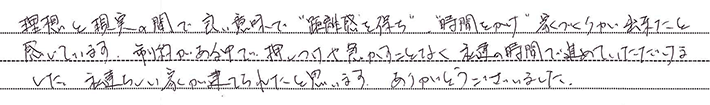 理想と現実の間で良い意味で"距離感を保ち""時間をかけ"家づくりが出来たと
感じています。制約がある中で、押しつけや急かすことなく私達の時間で進めていただけま
した。私達らしい家が建てられたと思います。ありがとうございました。